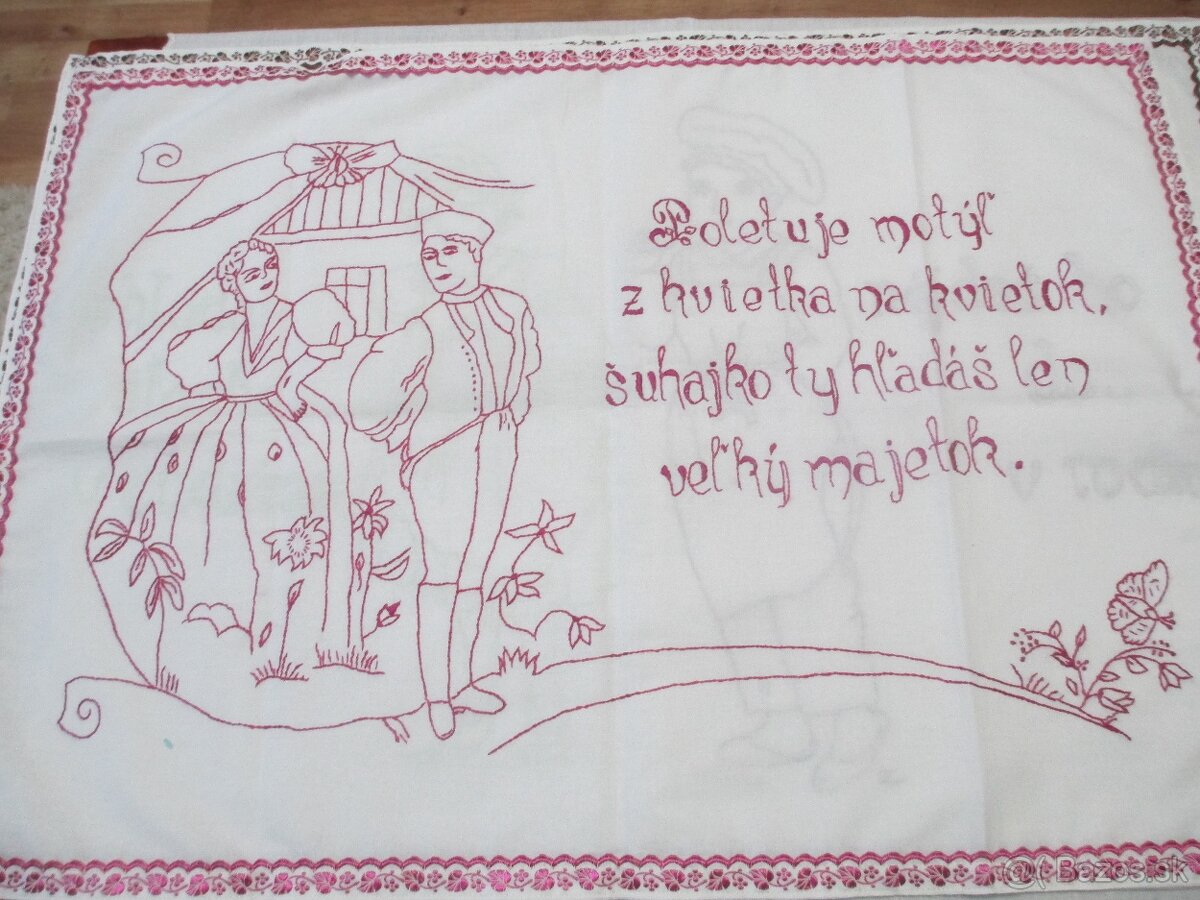 Poletuje motýľ
z kvietka na kvietok,
šuhajko ty hľadáš len
veľký majetok.
Bazos.sk